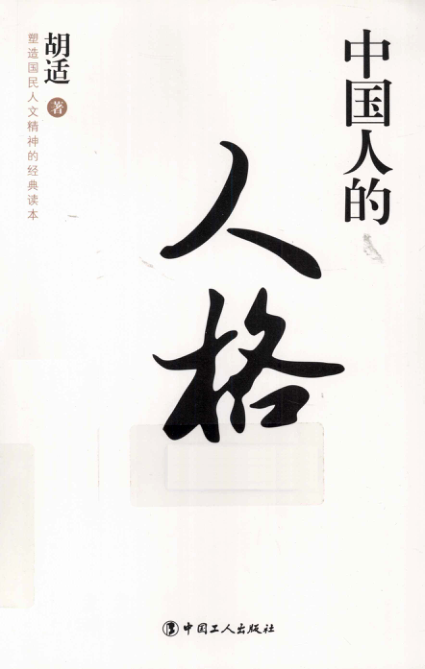 中国人的
人格
胡适 著
塑造国民人文精神的经典读本
中国工人出版社